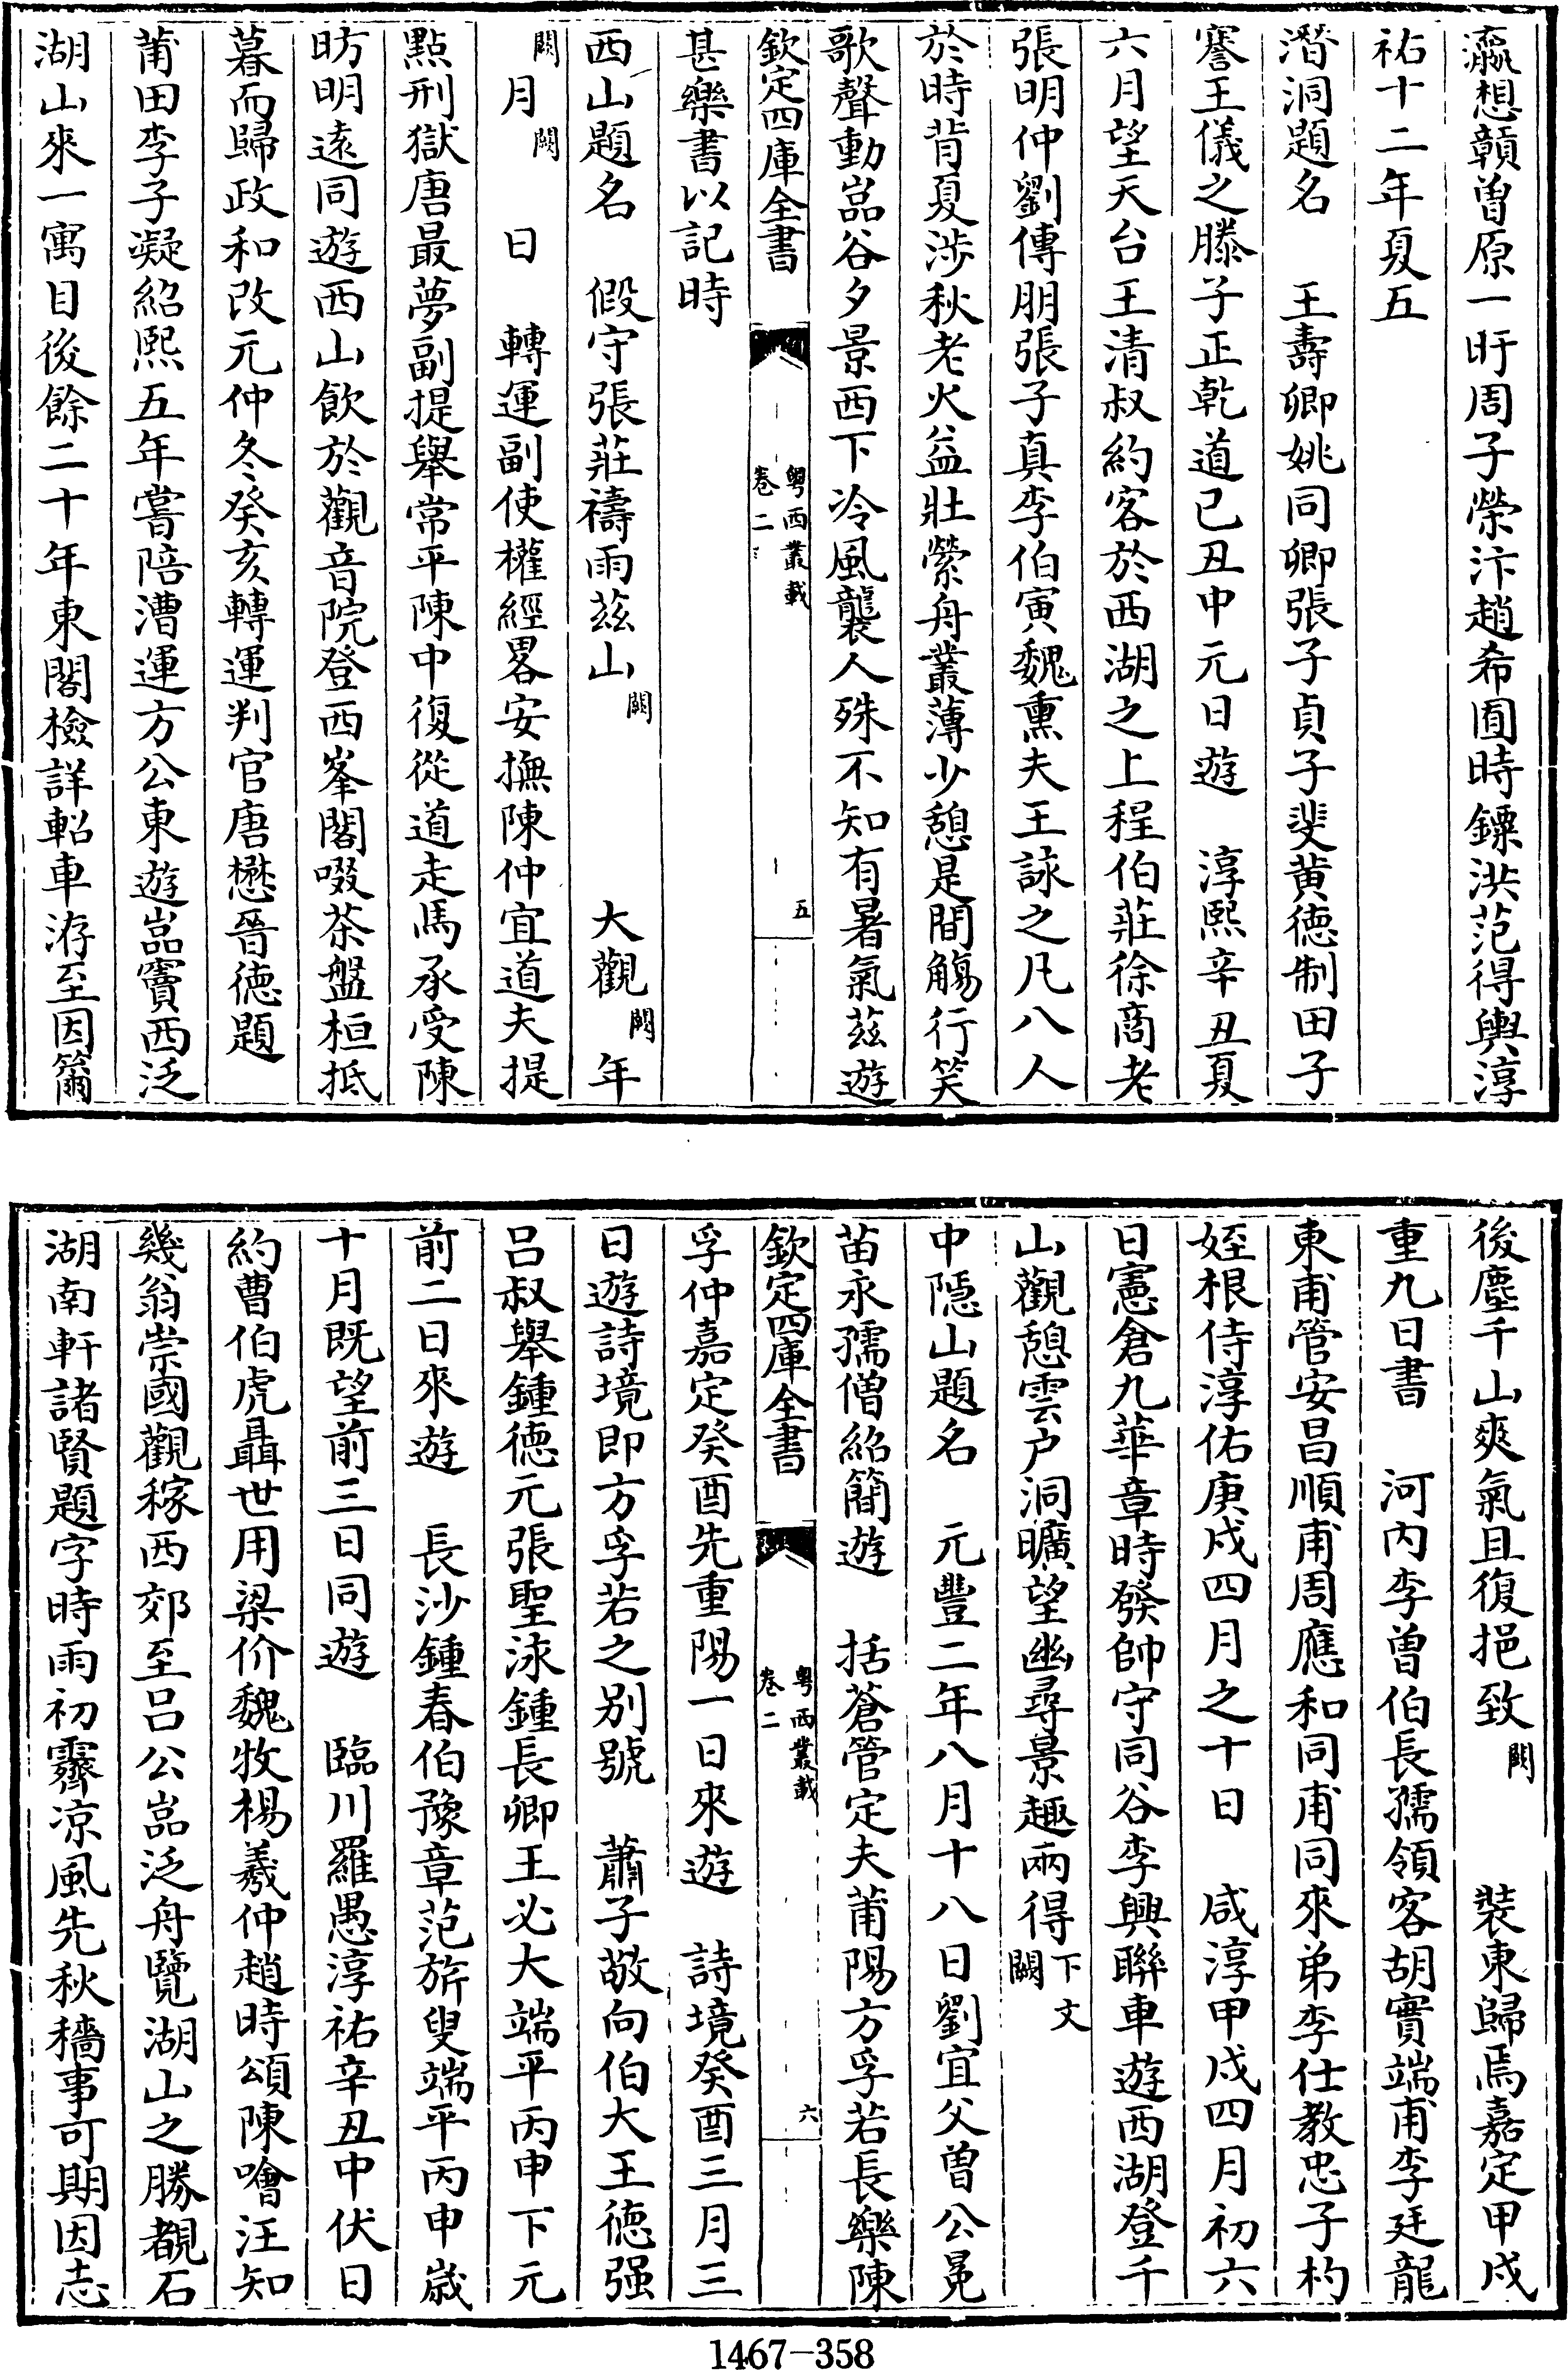 瀛想贛曽原一盱周子榮汴趙希囿時鏢洪范得輿淳
祐十二年夏五
潛洞題名　王壽卿姚同卿張子貞子斐黄徳制田子
謇王儀之滕子正乾道已丑中元日遊　淳熙辛丑夏
六月望天台王清叔約客於西湖之上程伯莊徐商老
張明仲劉傳朋張子真李伯寅魏熏夫王詠之凡八人
於時背夏涉秋老火益壯縈舟叢薄少憩是間觴行笑
歌聲動嵓谷夕景西下冷風襲人殊不知有暑氣茲遊
欽定四庫全書　粤西叢載 卷二　五
甚樂書以記時
西山題名　假守張莊禱雨茲山闕　大觀闕年
闕月闕　日　轉運副使權經畧安撫陳仲宜道夫提
點刑獄唐最夢副提舉常平陳中復從道走馬承受陳
昉明遠同遊西山飲於觀音院登西峯閣啜茶盤桓抵
暮而歸政和改元仲冬癸亥轉運判官唐懋晉徳題
莆田李子凝紹熙五年嘗陪漕運方公東遊嵓竇西泛
湖山來一寓目後餘二十年東閣檢詳軺車洊至因簫
後塵千山爽氣且復挹致闕　裝東歸焉嘉定甲戍
重九日書　河内李曽伯長孺領客胡實端甫李廷龍
東甫管安昌順甫周應和同甫同來弟李仕教忠子杓
姪根侍淳佑庚戍四月之十日　咸淳甲戍四月初六
日憲倉九華章時發帥守同谷李興聯車遊西湖登千
山觀憩雲户洞曠望幽尋景趣兩得下文闕
中隱山題名　元豐二年八月十八日劉宜父曽公㫤
苗永孺僧紹簡遊　括蒼管定夫莆陽方孚若長樂陳
欽定四庫全書　粤西叢載 卷二　六
孚仲嘉定癸酉先重陽一日來遊　詩境癸酉三月三
日遊詩境即方孚若之别號　蕭子敬向伯大王徳强
吕叔舉鍾徳元張聖泳鍾長卿王必大端平丙申下元
前二日來遊　長沙鍾春伯豫章范旂叟端平丙申嵗
十月既望前三日同遊　臨川羅愚淳祐辛丑中伏日
約曹伯虎聶世用梁价魏牧楊羲仲趙時頌陳噲汪知
幾翁崇國觀稼西郊至吕公嵓泛舟覽湖山之勝覩石
湖南軒諸賢題字時雨初霽凉風先秋穡事可期因志
1467-358